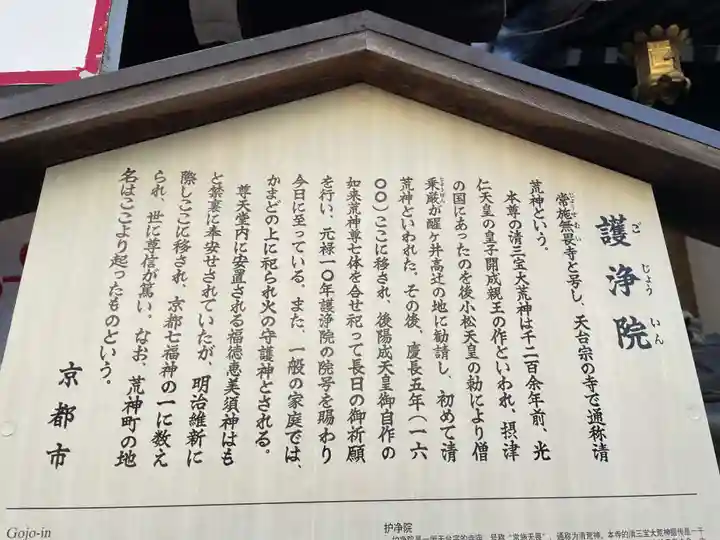 護浄院
ごじょういん
常施無畏寺と号し、天台宗の寺で通称清
じょうせむいじ
荒神という。
本尊の清三宝大荒神は千二百余年前、光
仁天皇の皇子開成親王の作といわれ、摂津
の国にあったのを後小松天皇の勅により僧
乗厳が醒ヶ井高辻の地に勧請し、初めて清
じょうげん
荒神といわれた。その後、慶長五年(一六
〇〇)ここに移され、後陽成天皇御自作の
如来荒神尊七体を合せ祀って長日の御祈願
を行い、元禄一〇年護浄院の院号を賜わり
今日に至っている。また、一般の家庭では、
かまどの上に祀られ火の守護神とされる。
尊天堂内に安置される福徳恵美須神はも
と禁裏に奉安せされていたが、明治維新に
際しここに移され、京都七福神の一に数え
られ、世に尊信が篤い。なお、荒神町の地
名はここより起ったものという。
京都市
Gojo-in
护净院
护净院是一所天台宗的寺庙，号称“常施无畏”，通称为清荒神。本寺的清三宝大荒神据传是一千